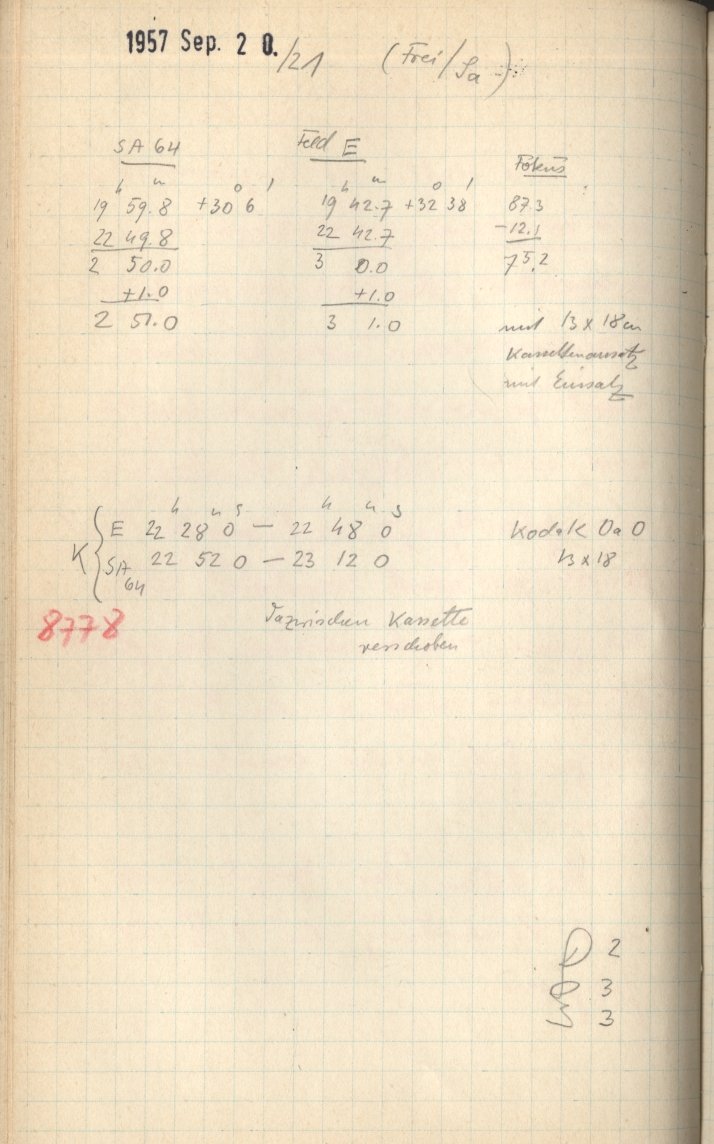 1957 Sep. 20./21 (Frei/Sa)
SA 64 Feld E Fokus
h m o ' h m o '
19 59.8 +30 6 19 42.7 +32 38 87.3
22 49.8 22 42.7 -12.1
2 50.0 3 0.0 75.2
+1.0 +1.0
2 51.0 3 1.0 mit 13 x 18 cm
Kassettenansatz
mit Einsatz
h m s h m s
K { E 22 28 0 — 22 48 0 Kodak OaO
SA 64 22 52 0 — 23 12 0 13 x 18
8778 Dazwischen Kassette
verschoben
2
3
3